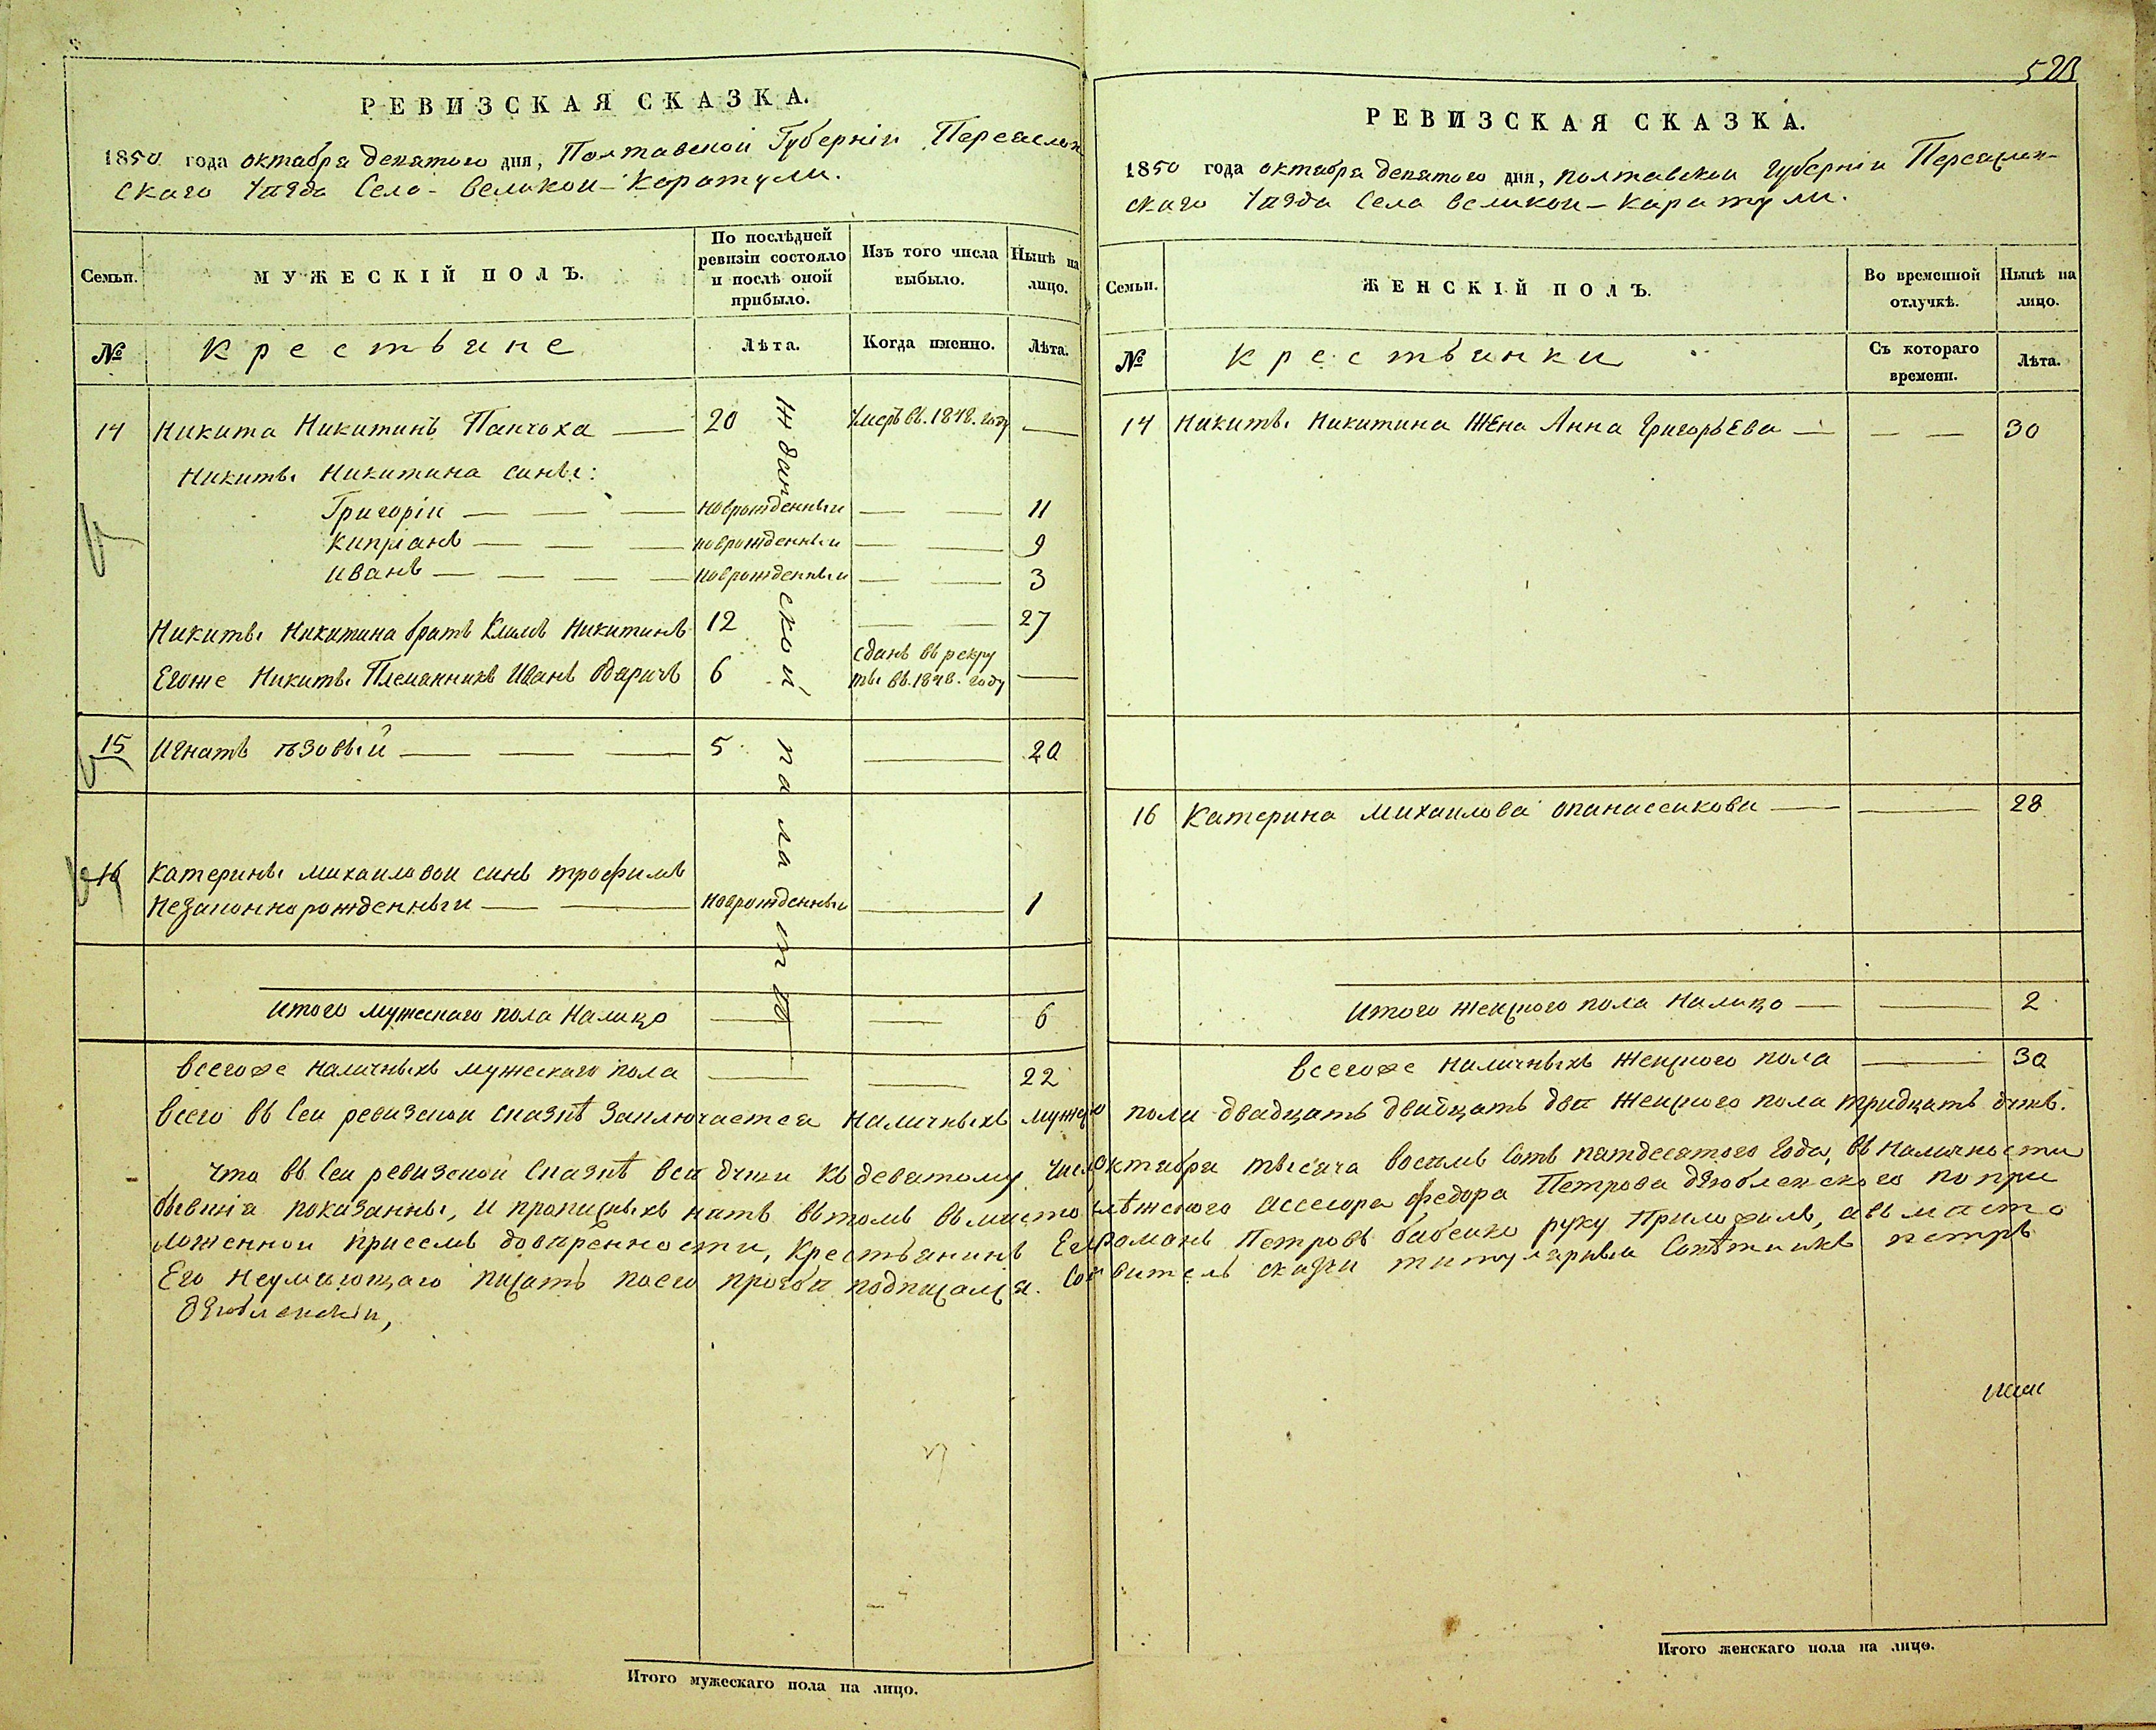 РЕВИЗСКАЯ СКАЗКА.
1850 года октабра девятого дня, Полтавской Губернiи Переяслов
скаго Уѣзда Села Великой-Каратули.
Семьи.
МУЖЕСКІЙ ПОЛЪ.
По послѣдней ревизіи состояло и послѣ оной прибыло.
Изъ того числа выбыло.
Нынѣ на лицо.
№
Крестьяне
Лѣта.
Когда именно.
Лѣта.
14 Никита Никитинъ Панчоха — 20 Умеръ въ 1848 году —
Никиты Никитина сины:
Григорій — — — новрожденный — — 11
Кипріанъ — — — новрожденный — — 9
Иванъ — — — — новрожденный — — 3
Никиты Никитина братъ Климъ Никитинъ 12 — — 27
Егоже Никиты Племянникъ Иванъ Одаричъ 6 сданъ въ рекру
ты въ 1848 году —
15 Игнатъ — — — 5 — 20
16 Катерины Михаиловой синъ Трофимъ
Незаконнорожденный — — новрожденный — 1
Итого мужескаго пола Налицо — — 6
Всегоже Наличныхъ мужескаго пола — — 22
Ждановской палаты
528
РЕВИЗСКАЯ СКАЗКА.
1850 года октабра девятого дня, Полтавской Губерніи Переяслов-
скаго Уѣзда Села Великой-Каратули.
Семьи.
ЖЕНСКІЙ ПОЛЪ.
Во временной отлучкѣ.
Нынѣ на лицо.
№
Крестьянки
Съ котораго времени.
Лѣта.
14 Никиты Никитина Жена Анна Григорьева — — — 30
16 Катерина Михаилова Опанасенкова — — 28
Итого Женского пола Налицо — — 2
Всегоже Наличныхъ Женского пола — 30
Всего въ Сей ревизской сказкѣ Заключается Наличныхъ мужеско пола двадцать двадцать два Женского пола тридцать дѵшъ.
Что въ Сей ревизской Сказкѣ вси дѵши къ девятому Числу октабря тысяча восемъ Сотъ пятдесятого Года, въ Наличности
показанны, и прописныхъ нѣтъ вътомъ вьмисто Ассесора Федора Петрова Дзюбленского попри
ложенной присемъ довѣренности, Крестьянинъ Его Романъ Петровъ Бабенко руку Приложилъ, авьмисто
Его Неумѣющаго писать поего прозби подписался. Составитель сказки титулярный Совѣтникъ Петръ
Дзюбленскій,
Итого мужескаго пола на лицо.
Итого женскаго пола на лицо.